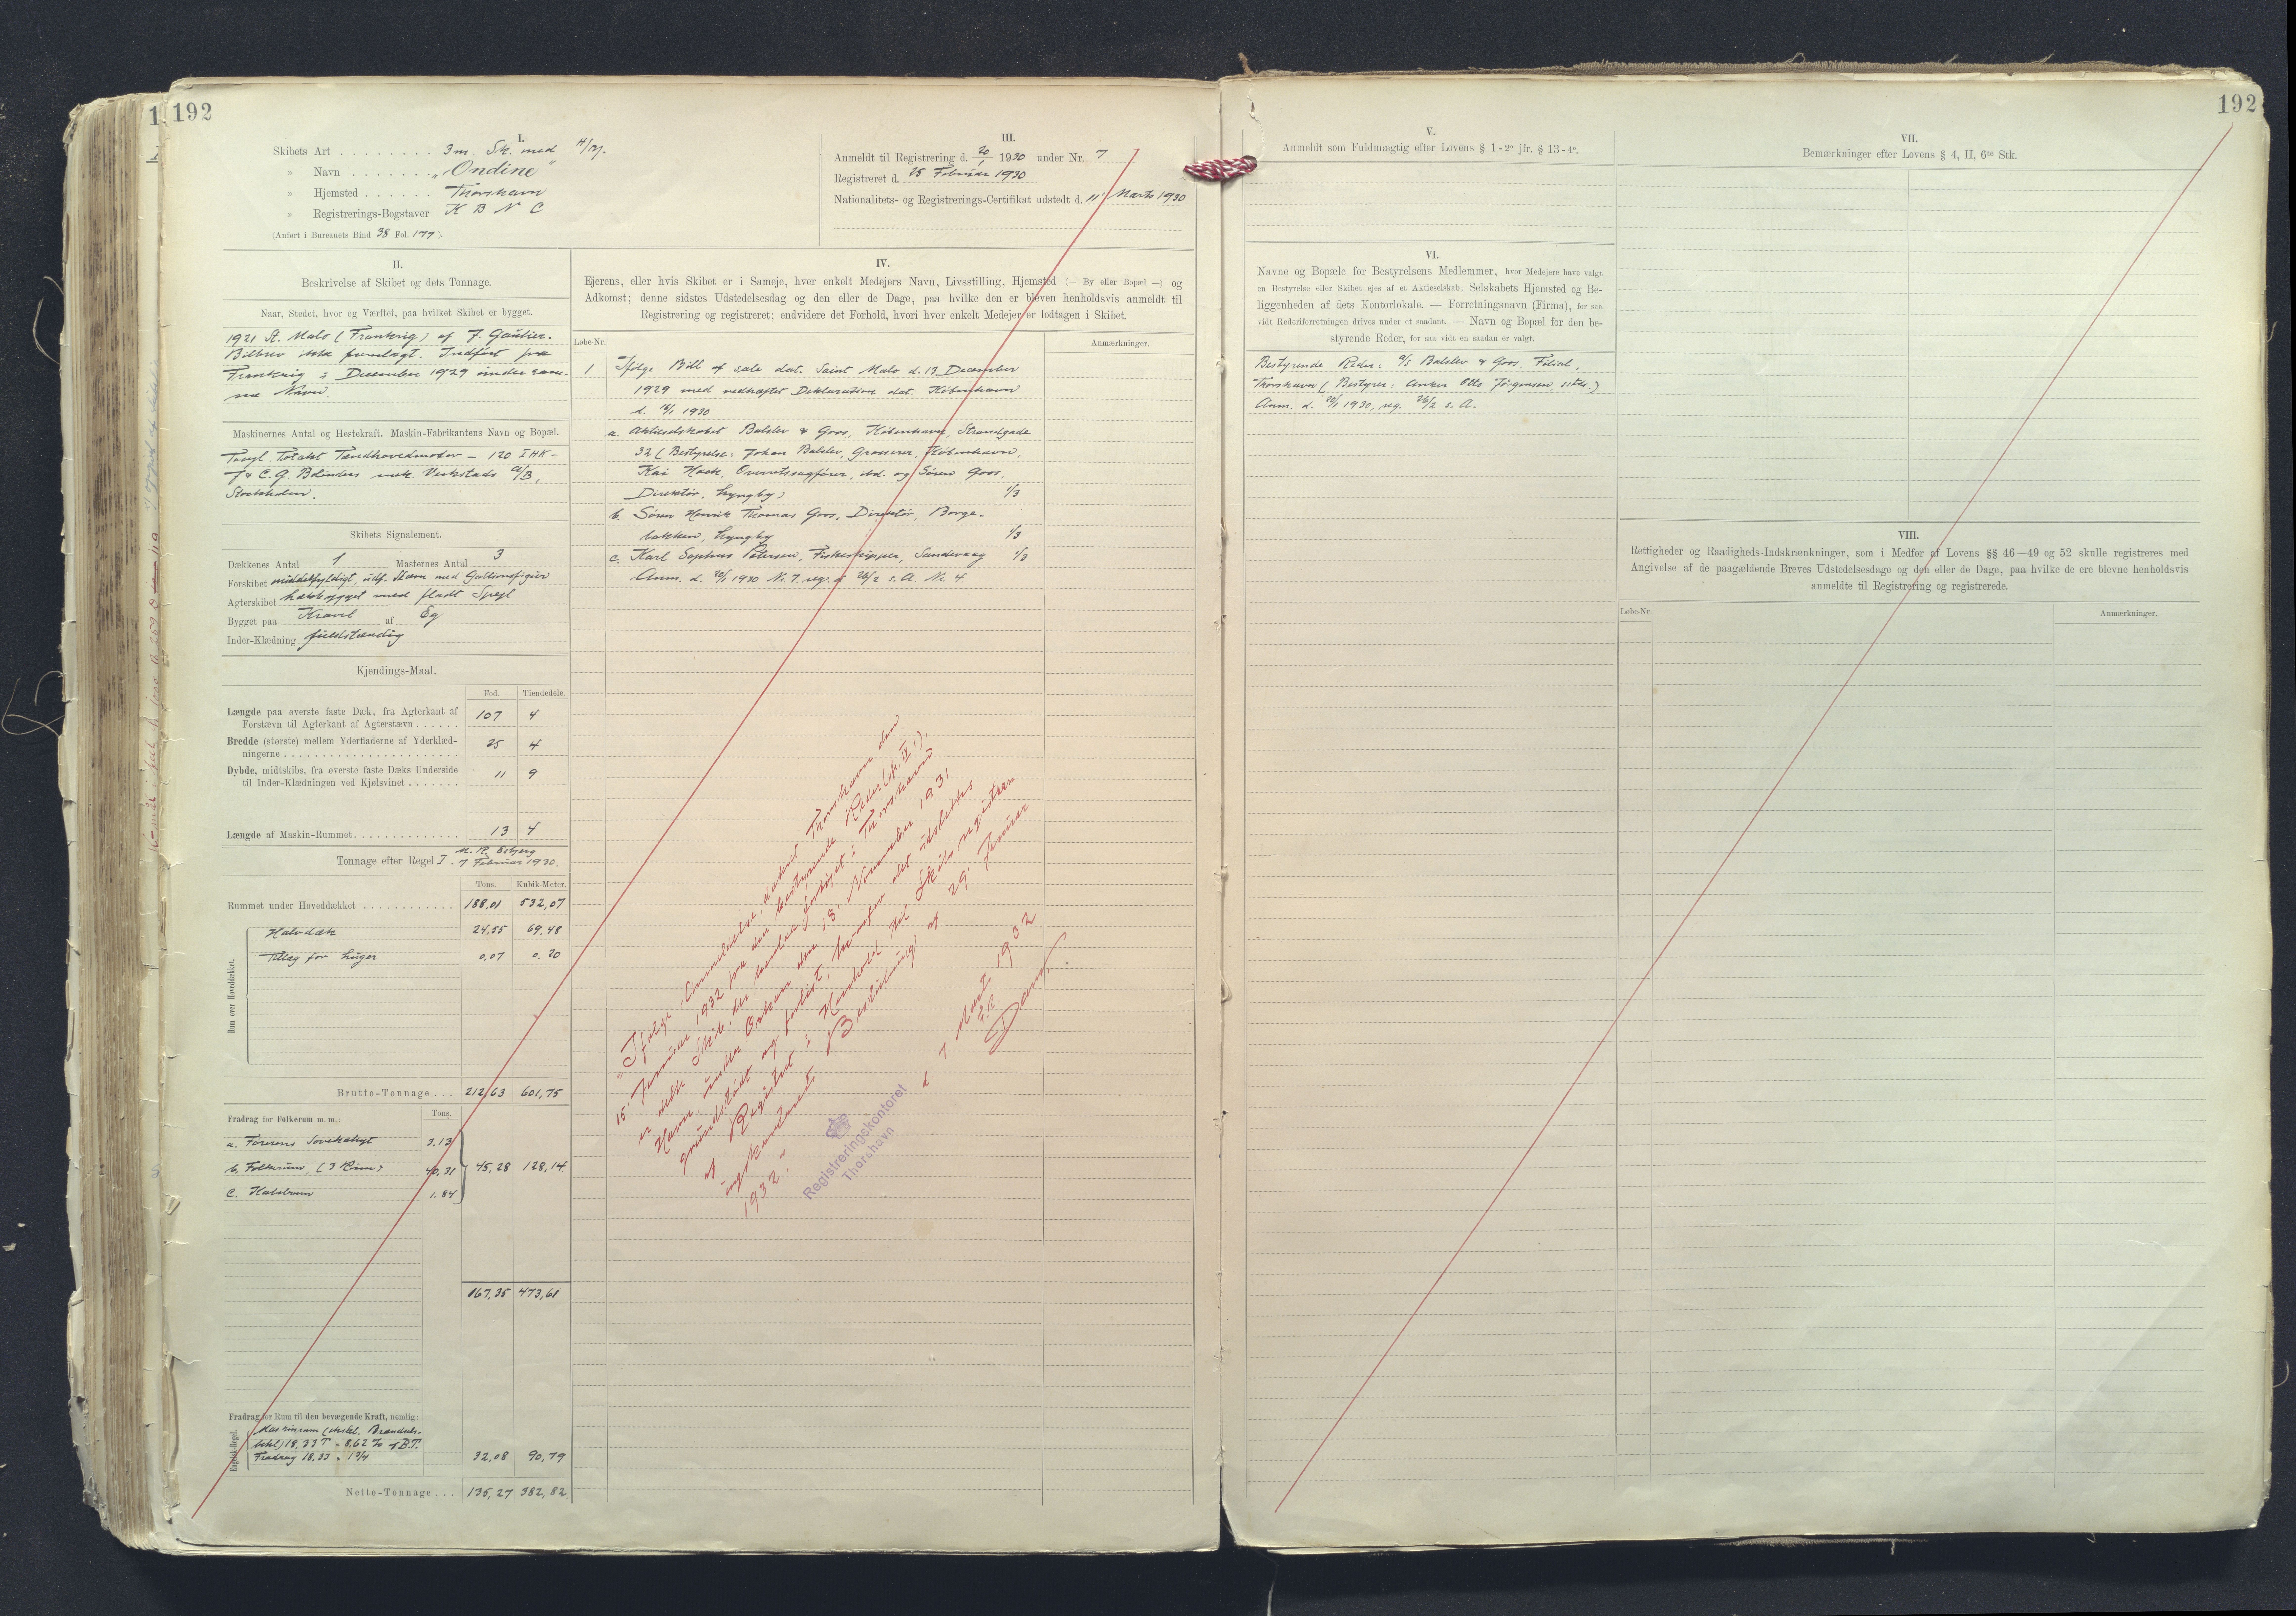 192
I.
Skibets Art . . . . . . . . 3 m. Sk. med H/M.
» Navn . . . . . . . "Ondine"
» Hjemsted . . . . . . Thorshavn
» Registrerings-Bogstaver K B N C
(Anført i Bureauets Bind 38 Fol. 177).
III.
Anmeldt til Registrering d. 20/1 1930 under Nr. 7
Registreret d. 25 Februar 1930
Nationalitets- og Registrerings-Certifikat udstedt d. 11' Marts 1930
II.
Beskrivelse af Skibet og dets Tonnage.
Naar, Stedet, hvor og Værftet, paa hvilket Skibet er bygget.
1921 St. Malo (Frankrig) af F. Gautier.
Bilbrev ikke fremlagt. Indført fra
Frankrig i December 1929 under sam-
me Navn.
Maskinernes Antal og Hestekraft. Maskin-Fabrikantens Navn og Bopæl.
Tocyl. Totakt Tændhovedmotor – 120 IHK –
J & C. G. Bolinders mek. Verkstads A/B,
Stockholm.
Skibets Signalement.
Dækkenes Antal 1 Masternes Antal 3
Forskibet middelfyldigt, udf. Stævn med Gallionsfigur
Agterskibet hækbygget med fladt Spejl
Bygget paa Kravel af Eg
Inder-Klædning fuldstændig
Kjendings-Maal.
Fod. Tiendedele.
Længde paa øverste faste Dæk, fra Agterkant af
Forstævn til Agterkant af Agterstævn . . . . . . 107 4
Bredde (største) mellem Yderfladerne af Yderklæd-
ningerne . . . . . . 25 4
Dybde, midtskibs, fra øverste faste Dæks Underside
til Inder-Klædningen ved Kjølsvinet . . . . . . . 11 9
Længde af Maskin-Rummet . . . . . . 13 4
Tonnage efter Regel I. M. R. Esbjerg
7 Februar 1930.
Tons. Kubik-Meter.
Rummet under Hoveddækket . . . . . . 188,01 532,07
Rum over Hoveddækket.
Halvdæk 24,55 69,48
Tillæg for Luger 0,07 0,20
Brutto-Tonnage . . . 212,63 601,75
Fradrag for Folkerum m. m.: Tons.
a. Førerens Sovekahyt 3.13
b. Folkerum, (3 Rum) 40,31 45,28 128,14
c. Kabelrum 1.84
167,35 473,61
Fradrag for Rum til den bevægende Kraft, nemlig:
Engelsk-Regel.
Maskinrum (inkl. Brændsels-
behl) 18,33 T = 8,62 % af B.T.
Fradrag 18,33 × 1 3/4 32,08 90,79
Netto-Tonnage . . . 135,27 382,82
IV.
Ejerens, eller hvis Skibet er i Sameje, hver enkelt Medejers Navn, Livsstilling, Hjemsted (— By eller Bopæl —) og
Adkomst; denne sidstes Udstedelsesdag og den eller de Dage, paa hvilke den er bleven henholdsvis anmeldt til
Registrering og registreret; endvidere det Forhold, hvori hver enkelt Medejer er lodtagen i Skibet.
Løbe-Nr. Anmærkninger.
1 Ifølge Bill of sale dat. Saint Malo d. 13 December
1929 med vedhæftet Deklaration dat. København
d. 1930
a. Aktieselskabet Balslev & Goos, København, Strandgade
32 (Bestyrelse: Johan Balslev, Grosserer, København,
Kai Hoek, Overretssagfører, ibd. og Søren Goos,
Direktør, Lyngby) 1/3
b. Søren Henrik Thomas Goos, Direktør, Borge-
bakken, Lyngby 1/3
c. Karl Sophus Petersen, Fiskeskipper, Sandevaag 1/3
Anm. d. 20/1 1930 Nr. 7. reg. d. 26/2 s. A. Nr. 4.
"Ifølge Anmeldelse, dateret Thorshavn den
15. Januar 1932 fra den bestyrende Reder (sp. IV 1).
er dette Skib, der henlaa fortøjet i Thorshavns
Havn, under Orkan den 18. November 1931
grundstødt og forlist, hvorfor det udslettes
af Registret i Henhold til Skibsregistrer-
ingskontorets Beslutning af 29. Januar
1932."
d. 7 Marts 1932
F.R.
Dam.
Registreringskontoret
Thorshavn
192
V.
Anmeldt som Fuldmægtig efter Lovens § 1-2º jfr. § 13-4º.
VI.
Navne og Bopæle for Bestyrelsens Medlemmer, hvor Medejere have valgt
en Bestyrelse eller Skibet ejes af et Aktieselskab; Selskabets Hjemsted og Be-
liggenheden af dets Kontorlokale. — Forretningsnavn (Firma), for saa
vidt Rederiforretningen drives under et saadant. — Navn og Bopæl for den be-
styrende Reder, for saa vidt en saadan er valgt.
Bestyrende Reder: A/S Balslev & Goos, Filial,
Thorshavn (Bestyrer: Anker Otto Jørgensen, sstds.)
Anm. d. 20/1 1930, reg. 26/2 s. A.
VII.
Bemærkninger efter Lovens § 4, II, 6te Stk.
VIII.
Rettigheder og Raadigheds-Indskrænkninger, som i Medfør af Lovens §§ 46—49 og 52 skulle registreres med
Angivelse af de paagældende Breves Udstedelsesdage og den eller de Dage, paa hvilke de ere blevne henholdsvis
anmeldte til Registrering og registrerede.
Løbe-Nr. Anmærkninger.